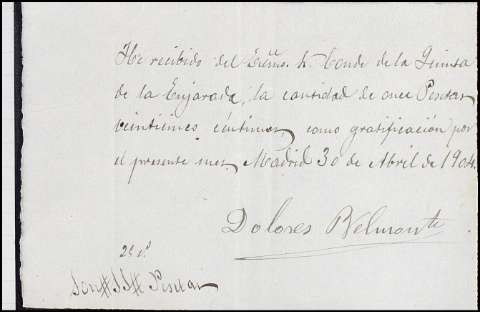 He recibido del Excmo. Sr. Conde de la Quinta
de la Enjarada, la cantidad de once Pesetas
veinticinco céntimos, como gratificación por
el presente mes, Madrid 30 de Abril de 1904.
Dolores Belmonte
Son Pesetas